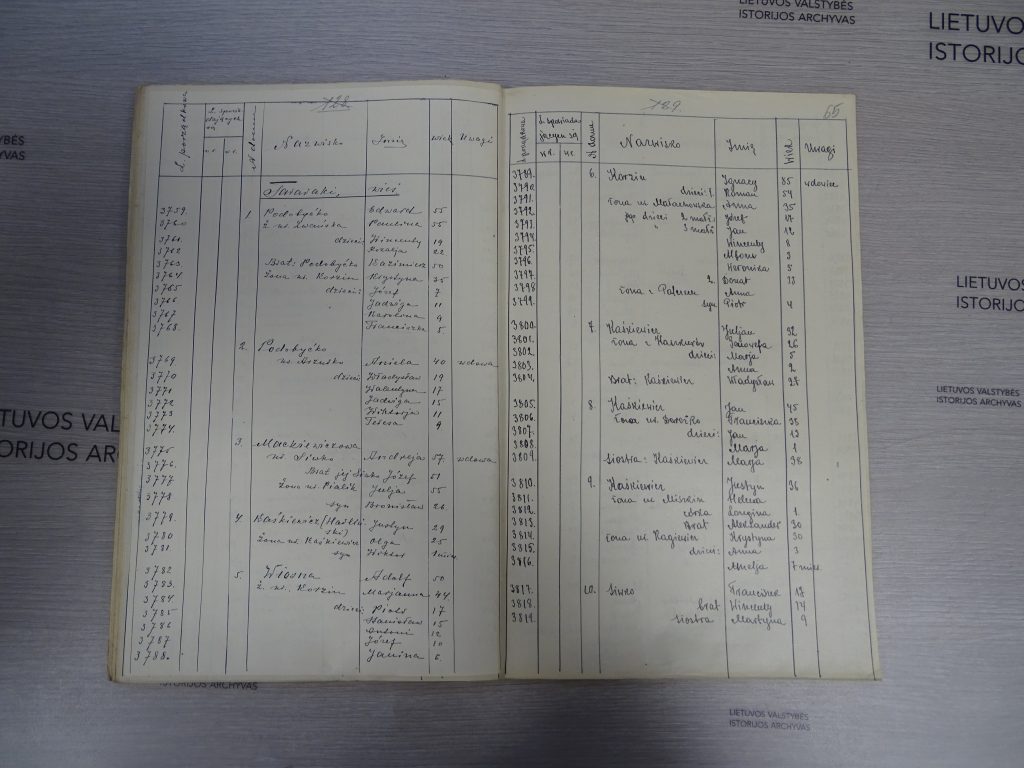 LIETUVOS VALSTYBĖS
ISTORIJOS ARCHYVAS
LIETUVO
ISTORIJO
788
L. porządkowa
N domu
Nazwisko
Imię
wiek
Uwagi
wieś
3759. 1. Podobyćko Edward 55
3760 Ż. ur. Paulina 55
3761. dzieci: Wincenty 19
3762 Rozalja 22
3763 Brat: Podobyćko Kazimierz 50
3764. Żona ur. Korzin Krystyna 35
3765 dzieci: Józef 7
3766 Jadwiga 11
3767 Karolina 9
3768. Franciszka 5
2. Podobyćko
3769 ur. Aniela 40 wdowa
3770 dzieci: Władysław 19
3771 Walentyna 17
3772 Jadwiga 15
3773 Wiktorja 11
3774. Teresa 9
3. Mackiewiczowa
3775 ur. Siwko Andreja 57. wdowa
3776. Brat jej Siwko Józef 61
3777 Żona ur. Pialik Julja 55
3778 syn Bronisław 26
3779. 4. Baśkiewicz Justyn 29
3780 Żona ur. Kaśkiewicz Olga 25
3781. syn Wiktor 1
3782 5. Wiosna Adolf 50
3783. Ż. ur. Korzin Marjanna 44
3784. dzieci Piotr 17
3785 Stanisław 15
3786 Antoni 12
3787 Józef 10
3788. Janina 6
789
55
L porządkowa
N domu
Nazwisko
Imię
Wiek
Uwagi
3789. 6. Korzin Ignacy 85 wdowiec
3790. dzieci: 1. Roman 54
3791. żona ur. Małachowska Anna 35
3792. jego dzieci z małż. Józef 17
3793. " z małż Jan 12
3794. Wincenty 8
3795. Alfons 3
3796 Weronika 5
3797. 2. Donat 33
3798 żona z Anna
3799. syn Piotr 4
3800. 7. Kaśkiewicz Juljan 32
3801. żona z Kaśkiewicz Jadwiga 26
3802. dzieci: Marja 5
3803. Anna 2
3804. Brat: Kaśkiewicz Władysław 27
3805. 8. Kaśkiewicz Jan 45
3806. żona ur. Franciszka 35
3807. dzieci: Jan 13
3808. Marja 1
3809. siostra: Kaśkiewicz Marja 38
3810. 9. Kaśkiewicz Justyn 36
3811. żona ur. Miszkin Helena
3812. córka Longina 1
3813. Brat Aleksander 30
3814. żona ur. Krystyna 30
3815. dzieci: Anna 3
3816. Amelja 7 mies.
3817. 10. Siwko Franciszek 18
3818. brat Wincenty 14
3819. siostra Martyna 9
YBĖS
HYVAS
LIETUVOS VAL
ISTORIJOS
LIETUVOS VALSTYBĖS
ISTORIJOS ARCHYVAS
LIETUVOS VAL
TORIJOS AR
ISTORIJOS ARCHYVAS
LIETUVOS VALSTYBĖS
ISTORIJOS ARCHYVAS